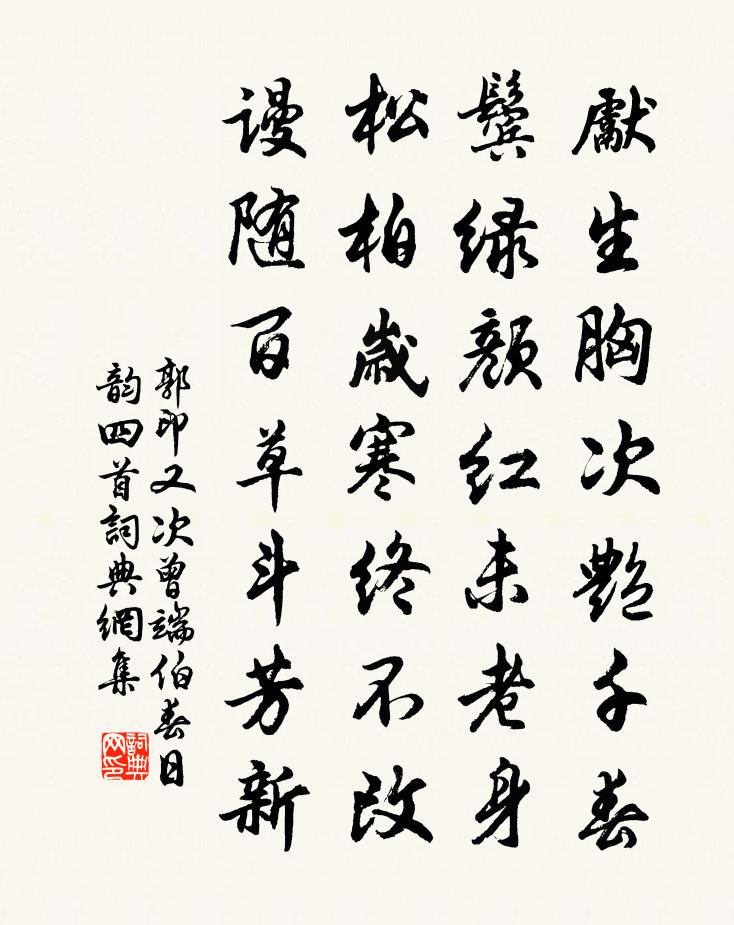 獻生胸次艷千春
鬓绿颜红未老身
松柏歲寒终不改
谩随百草斗芳新
郭印又次曾端伯春日
韵四首詞典網集
詞典
网印